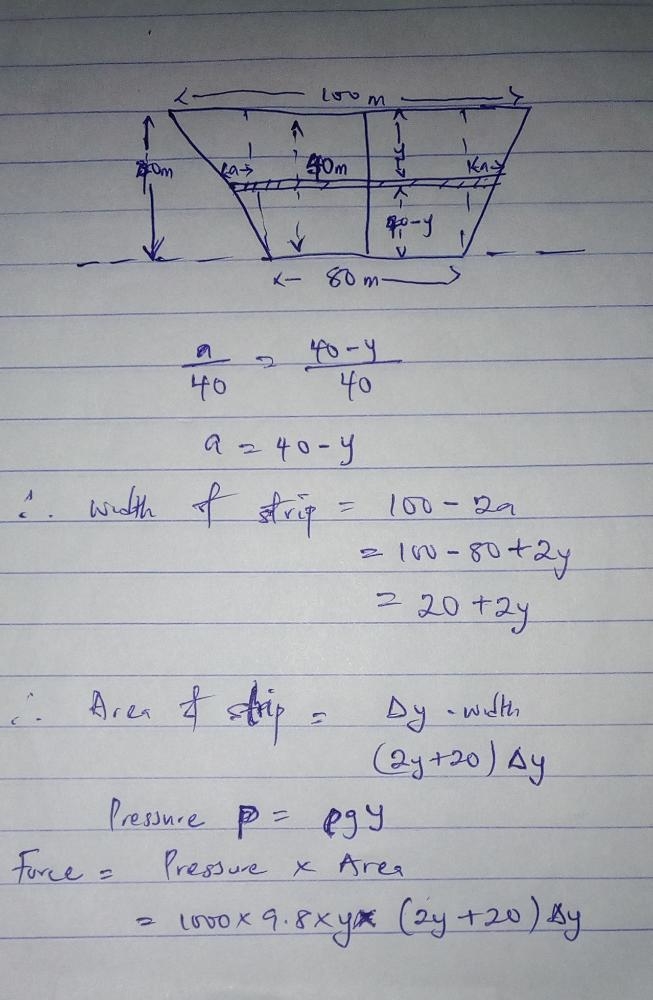 100 m
40m
a
40m
y
a
40-y
80 m
a/40 = 40-y/40
a = 40-y
∴ width of strip = 100 - 2a
= 100 - 80 + 2y
= 20 + 2y
∴ Area of strip = Δy . width
(2y+20) Δy
Pressure P = ρgy
Force = Pressure x Area
= 1000 x 9.8 x y x (2y+20) Δy